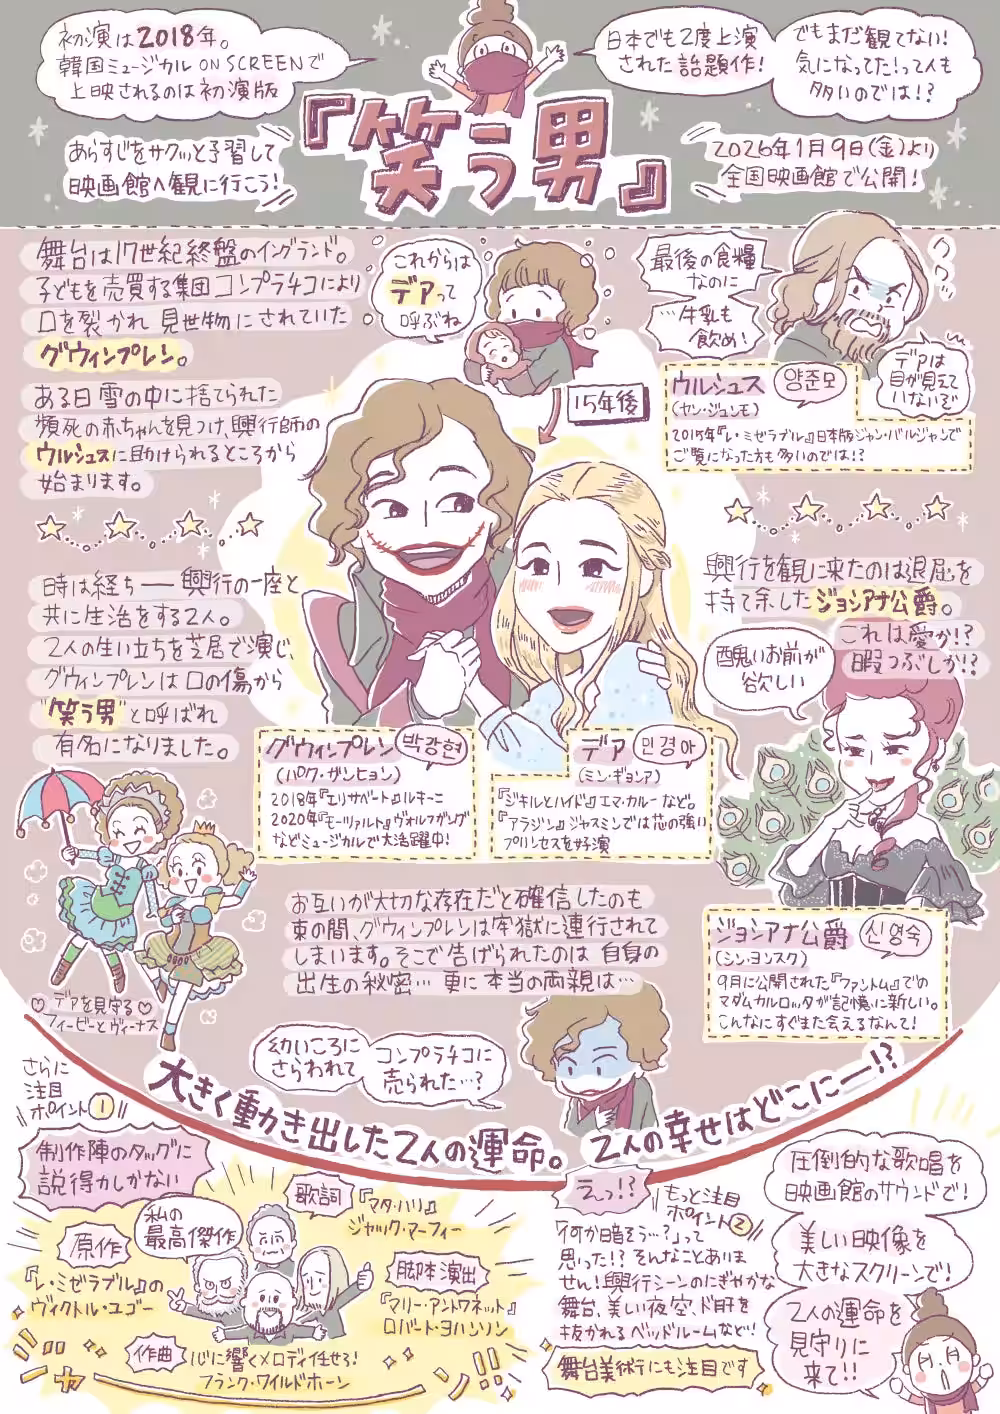 初演は2018年。
韓国ミュージカル ON SCREENで
上映されるのは初演版
日本でも2度上演
された話題作!
でもまだ観てない!
気になってた!って人も
多いのでは!?
あらすじをサクッと予習して
映画館へ観に行こう!
『笑う男』
2026年1月9日(金)より
全国映画館で公開!
舞台は17世紀終盤のイングランド。
子どもを売買する集団コンプラチコにより
口を裂かれ 見世物にされていた
グウィンプレン。
ある日 雪の中に捨てられた
瀕死の赤ちゃんを見つけ、興行師の
ウルシュスに助けられるところから
始まります。
これからは
デアって
呼ぶね
15年後
最後の食糧
なのに
…牛乳も
飲め!
ワワワ…
デアは
目が見えて
いないぞ
ウルシュス
양준모
(ヤン・ジュンモ)
2015年『レ・ミゼラブル』日本版ジャン・バルジャンで
ご覧になった方も多いのでは!?
時は経ち——興行の一座と
共に生活をする2人。
2人の生い立ちを芝居で演じ、
グウィンプレンは口の傷から
"笑う男"と呼ばれ
有名になりました。
興行を観に来たのは退屈を
持て余したジョシアナ公爵。
これは愛か!?
暇つぶしか!?
醜いお前が
欲しい
グウィンプレン
박강현
(パク・ガンヒョン)
2018年『エリザベート』ルキーニ
2020年『モーツァルト』ヴォルフガング
などミュージカルで大活躍中!
デア
민경아
(ミン・ギョンア)
『ジキルとハイド』エマ・カルーなど。
『アラジン』ジャスミンでは芯の強い
プリンセスを好演
ジョシアナ公爵
신영숙
(シン・ヨンスク)
9月に公開された『ファントム』での
マダムカルロッタが記憶に新しい。
こんなにすぐまた会えるなんて!
♡デアを見守る♡
フィービーとヴィーナス
お互いが大切な存在だと確信したのも
束の間、グウィンプレンは牢獄に連行されて
しまいます。そこで告げられたのは 自身の
出生の秘密… 更に本当の両親は…
幼いころに
さらわれて
コンプラチコに
売られた…?
大きく動き出した2人の運命。2人の幸せはどこにー!?
さらに
注目
ポイント①
制作陣のタッグに
説得力しかない
原作
『レ・ミゼラブル』の
ヴィクトル・ユゴー
私の
最高傑作
歌詞
『マタ・ハリ』
ジャック・マーフィー
脚本演出
『マリー・アントワネット』
ロバート・ヨハンソン
作曲
心に響くメロディ任せろ!
フランク・ワイルドホーン
ジャーン!!
えっ!?
もっと注目
ポイント②
「何か暗そう…?」って
思った!? そんなことありま
せん!興行シーンのにぎやかな
舞台、美しい夜空、ド肝を
抜かれるベッドルームなど!
舞台美術にも注目です
圧倒的な歌唱を
映画館のサウンドで!
美しい映像を
大きなスクリーンで!
2人の運命を
見守りに
来て!!